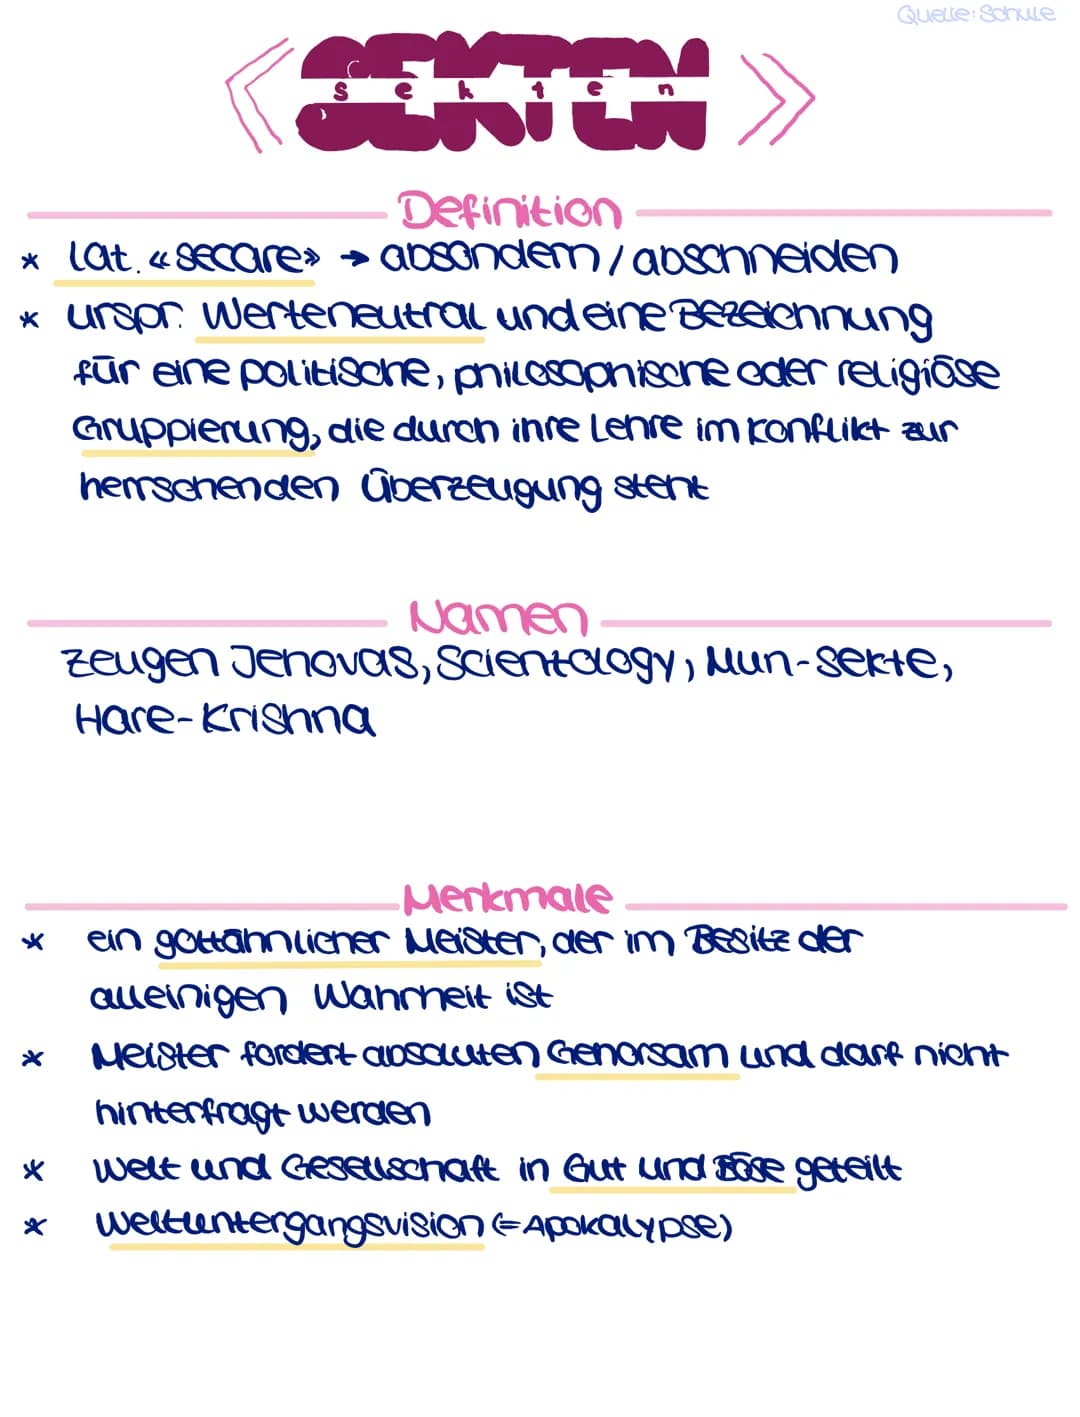 Quelle: Schule
SEKTEN
sekten
Definition
* lat. «secare» → absondern / abschneiden
* urspr. Werteneutral und eine Bezeichnung
für eine politische, philosophische oder religiöse
Gruppierung, die durch ihre Lehre im Konflikt zur
herrschenden Überzeugung steht
Namen
Zeugen Jehovas, Scientology, Mun-Sekte,
Hare-Krishna
Merkmale
* ein gottähnlicher Meister, der im Besitz der
alleinigen Wahrheit ist
* Meister fordert absoluten Gehorsam und darf nicht
hinterfragt werden
* Welt und Gesellschaft in Gut und Böse geteilt
* Weltuntergangsvision (=Apokalypse)